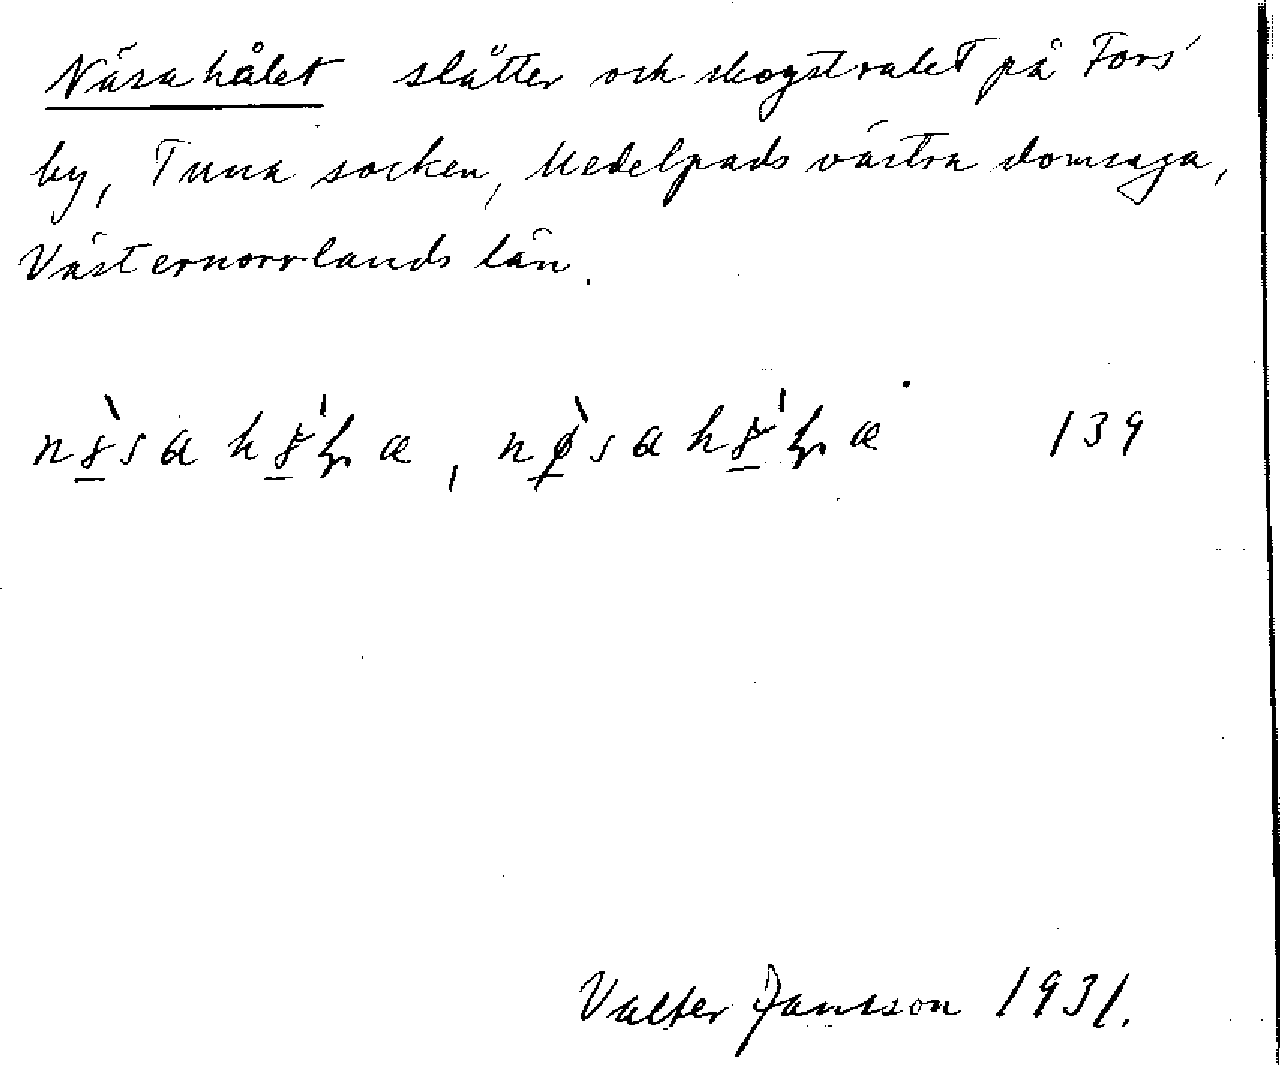 Näsahålet slåtter och skogstrakt på Fors
by, Tuna socken, Medelpads västra domsaga,
Västernorrlands län.
139
Valter Jansson 1931.